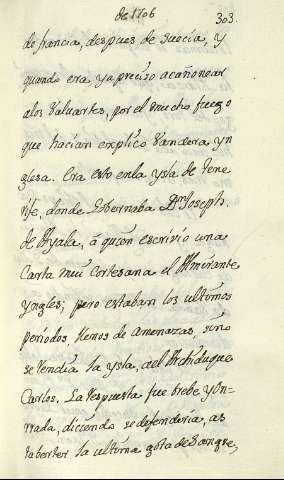 de 1706
303.
de francia, despues de suecia, y
quando era ya preciso acañonear
a los Valuartes, por el mucho fuego
que hacian explicó Vandera yn
glesa. Era esto en la ysla de Tene
rife, donde Governaba Dn Joseph
de Ayala, á quien escrivio una
Carta mui cortesana el Almirante
yngles; pero estaban los ultimos
periodos, llenos de amenazas, sino
se rendia la ysla, al Archiduque
Carlos. La respuesta fue brebe y on-
rrada, diciendo se defenderia, as
ta berter la ultima gota de sangre,